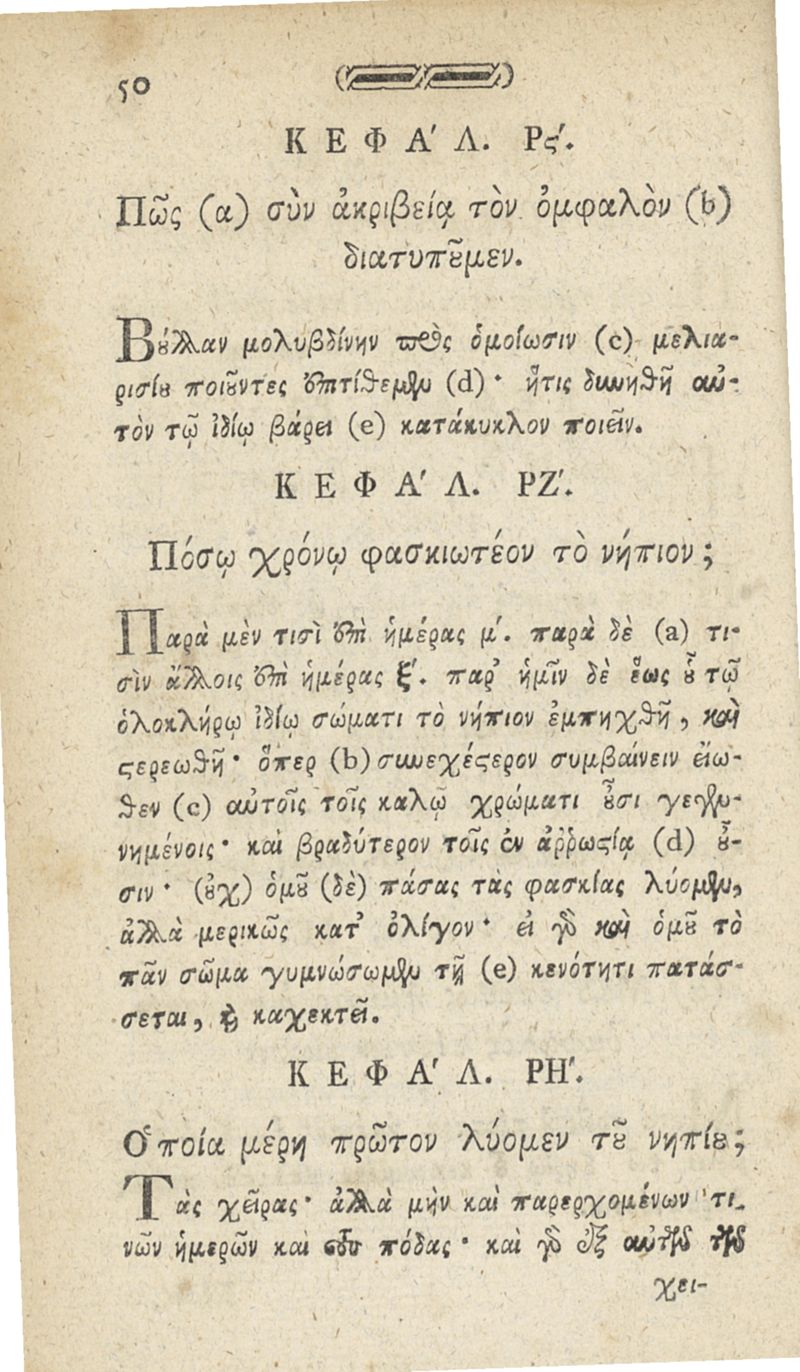 50
ΚΕΦΑ'Λ. Ρϛ'.
Πῶς (α) σὺν ἀκριβείᾳ τὸν ὀμφαλὸν (b)
διατυπȣ͂μεν.
Βȣ́λλαν μολυβδίνην πρὸς ὁμοίωσιν (c) μελια-
ρισίȣ ποιȣ͂ντες ἐπιτίθεμεν (d)· ἥτις δυνηθῇ αὐ-
τὸν τῷ ἰδίῳ βάρει (e) κατάκυκλον ποιεῖν.
ΚΕΦΑ'Λ. ΡΖ'.
Πόσῳ χρόνῳ φασκιωτέον τὸ νήπιον;
Παρὰ μὲν τισὶ ἐπὶ ἡμέρας μ'. παρὰ δὲ (a) τι-
σὶν ἄλλοις ἐπὶ ἡμέρας ξ'. παρ' ἡμῖν δὲ ἕως ȣ̃̔ τῷ
ὁλοκλήρῳ ἰδίῳ σώματι τὸ νήπιον ἐμπηχθῇ, καὶ
ϛερεωθῇ· ὅπερ (b) συνεχέϛερον συμβαίνειν εἴω-
θεν (c) αὐτοῖς τοῖς καλῷ χρώματι ȣ̓͂σι γεγεν-
νημένοις· καὶ βραδύτερον τοῖς ἐν ἀῤῥωϛίᾳ (d) ȣ̓͂-
σιν· (ȣ̓χ) ὁμȣ͂ (δὲ) πάσας τὰς φασκίας λύομεν,
ἀλλὰ μερικῶς κατ' ὀλίγον· εἰ γὰρ καὶ ὁμȣ͂ τὸ
πᾶν σῶμα γυμνώσωμεν τῇ (e) κενότητι πατάσ-
σεται, καὶ καχεκτεῖ.
ΚΕΦΑ'Λ. ΡΗ'.
Ὁποία μέρη πρῶτον λύομεν τȣ͂ νηπίȣ;
Τὰς χεῖρας· ἀλλὰ μὴν καὶ παρερχομένων τι-
νῶν ἡμερῶν καὶ τοὺς πόδας· καὶ γὰρ ἐξ αὐτῶν τῶν
χει-